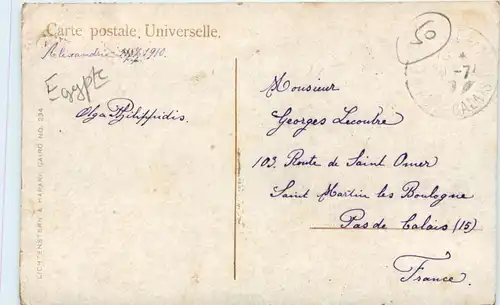 Carte postale, Universelle.
Alexandrie 1910.
Egypte
Olga Philippidis.
LICHTENSTERN & HARARI, CAIRO NO. 234
50
CALAIS
Monsieur
Georges Lecoutre
103. Route de Saint Omer
Saint Martin les Boulogne
Pas de Calais (15)
France.